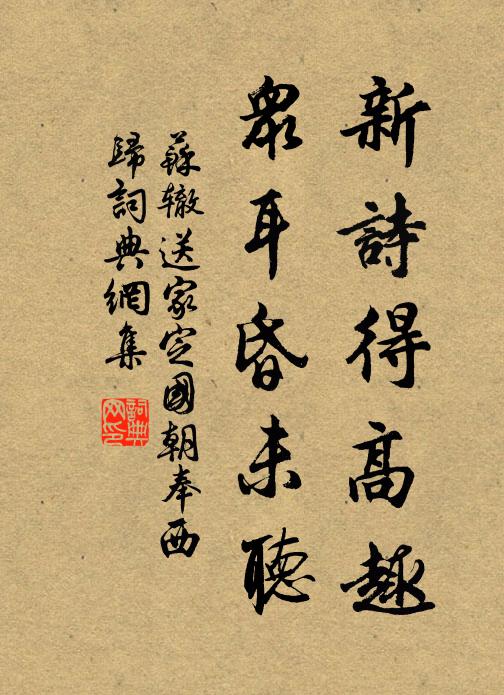 新詩得高趣
眾耳昏未聽
蘇轍送家定國朝奉西
歸詞典網集
詞典
网印